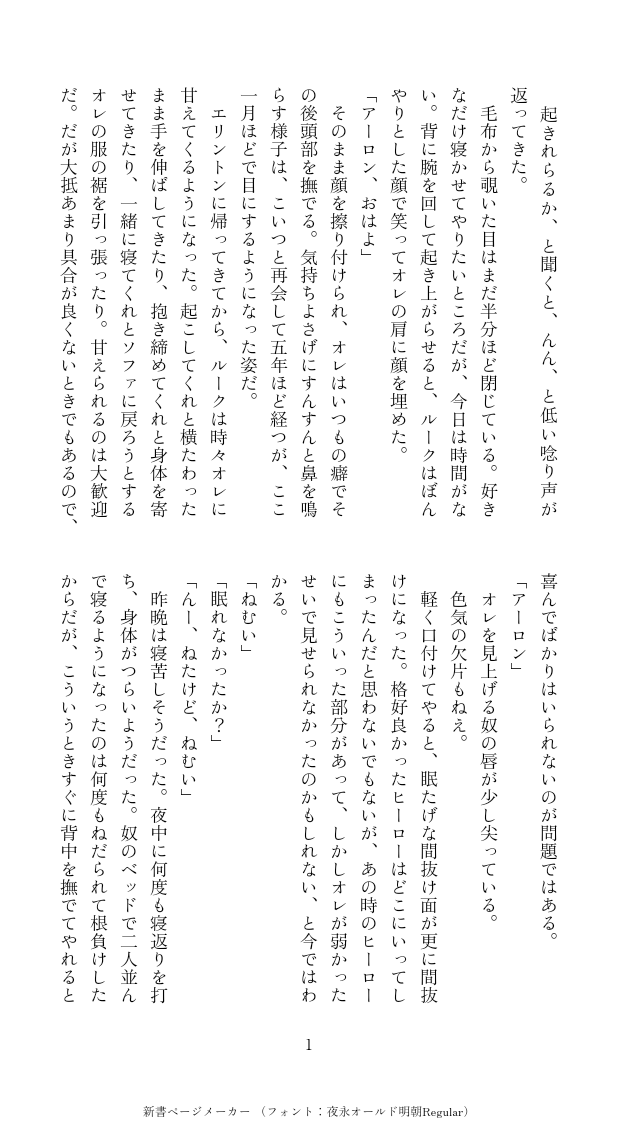 起きれらるか、と聞くと、んん、と低い唸り声が
返ってきた。
　毛布から覗いた目はまだ半分ほど閉じている。好き
なだけ寝かせてやりたいところだが、今日は時間がな
い。背に腕を回して起き上がらせると、ルークはぼん
やりとした顔で笑ってオレの肩に顔を埋めた。
「アーロン、おはよ」
　そのまま顔を擦り付けられ、オレはいつもの癖でそ
の後頭部を撫でる。気持ちよさげにすんすんと鼻を鳴
らす様子は、こいつと再会して五年ほど経つが、ここ
一月ほどで目にするようになった姿だ。
　エリントンに帰ってきてから、ルークは時々オレに
甘えてくるようになった。起こしてくれと横たわった
まま手を伸ばしてきたり、抱き締めてくれと身体を寄
せてきたり、一緒に寝てくれとソファに戻ろうとする
オレの服の裾を引っ張ったり。甘えられるのは大歓迎
だ。だが大抵あまり具合が良くないときでもあるので、
喜んでばかりはいられないのが問題ではある。
「アーロン」
　オレを見上げる奴の唇が少し尖っている。
　色気の欠片もねえ。
　軽く口付けてやると、眠たげな間抜け面が更に間抜
けになった。格好良かったヒーローはどこにいってし
まったんだと思わないでもないが、あの時のヒーロー
にもこういった部分があって、しかしオレが弱かった
せいで見せられなかったのかもしれない、と今ではわ
かる。
「ねむい」
「眠れなかったか？」
「んー、ねたけど、ねむい」
　昨晩は寝苦しそうだった。夜中に何度も寝返りを打
ち、身体がつらいようだった。奴のベッドで二人並ん
で寝るようになったのは何度もねだられて根負けした
からだが、こういうときすぐに背中を撫でてやれると
1
新書ページメーカー（フォント：夜永オールド明朝Regular）